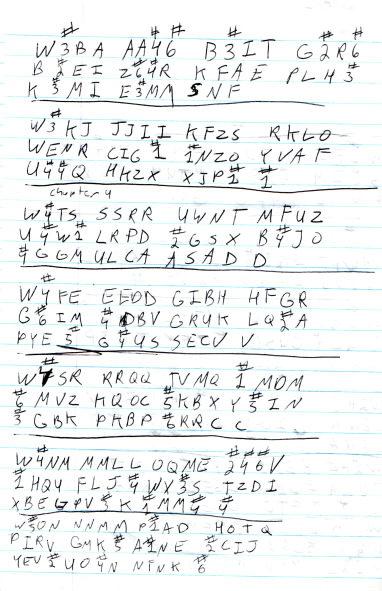 W#3BA AA4#6# B#3IT G#2R#6
B#2EI Z#6#4R KFAE PL4#3
K#3MI E#3MM 5NF
W#3KJ JJII KFZS RKLO
WENR CIG#1 #1NZO YVAF
U#4#4Q HKZX XJP#1 #1
chapter 4
W#4TS SSRR UWNT MFUZ
U#4W#1 LRPD #2GSX B#4JO
#4GGM ULCA ASAD D
W#4FE EEDD GIBH HFGR
G#6IM #4DBV GRUK LQ#2A
PYE#3 G#4US SECV V
W#4SR RRQQ TVMQ #1MDM
#6MVZ HQOC #5KBX Y#3IN
#3GBK PKBP #6RQC C
W#4NM MMLL OQME #2#4#6V
#1HQY FLJ#4 WX#3S TZDI
XBEG PV#3K #1MM#4 #4
W#5ON NNMM P#1AD HOTQ
PIRV GMK#3 A#1NE #2CIJ
YEV#2 UO#4N NFNK #6